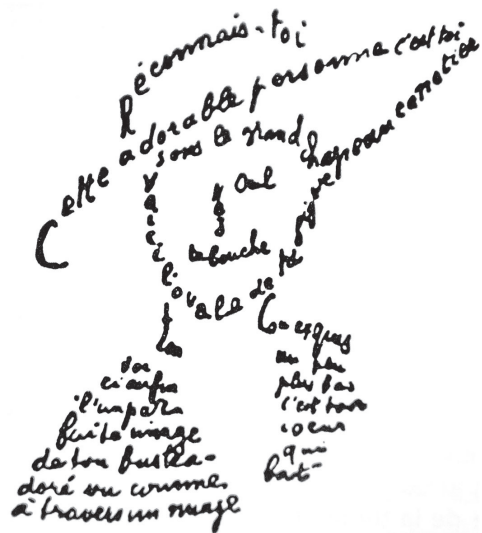 Reconnais-toi
Cette adorable personne c'est toi
sous le grand
chapeau canotier
Oeil
Nez
la bouche
Voici l'ovale de ta figure
Ton
cou exquis
Voi
ci enfin
l'imparfa
faite image
de ton buste a-
doré vu comme
à travers un nuage
un peu
plus bas
c'est ton
coeur
qui
bat